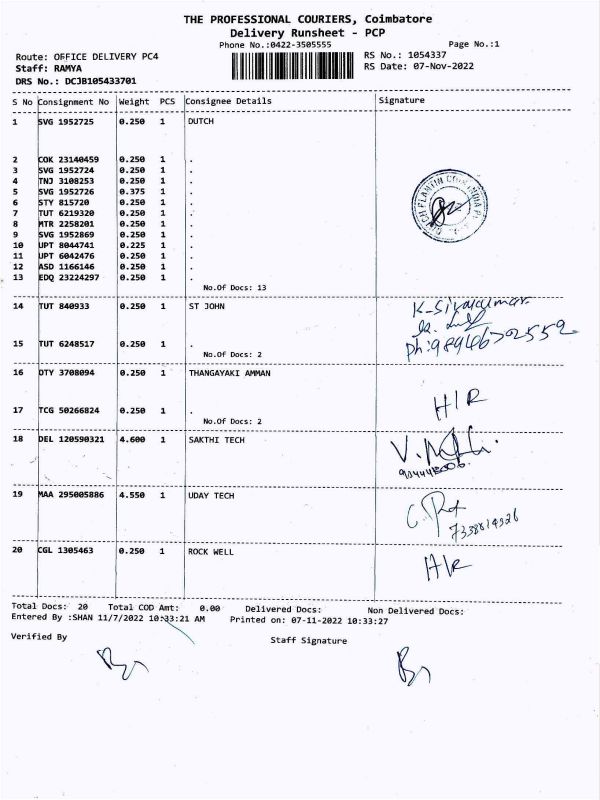 THE PROFESSIONAL COURIERS, Coimbatore
Delivery Runsheet - PCP
Phone No.:0422-3505555 Page No.:1
Route: OFFICE DELIVERY PC4 RS No.: 1054337
Staff: RAMYA RS Date: 07-Nov-2022
DRS No.: DCJB105433701
S No Consignment No Weight PCS Consignee Details Signature
1 SVG 1952725 0.250 1 DUTCH
2 COK 23140459 0.250 1 .
3 SVG 1952724 0.250 1 .
4 TNJ 3108253 0.250 1 .
5 SVG 1952726 0.375 1 .
6 STY 815720 0.250 1 .
7 TUT 6219320 0.250 1 .
8 MTR 2258201 0.250 1 .
9 SVG 1952869 0.250 1 .
10 UPT 8044741 0.225 1 .
11 UPT 6042476 0.250 1 .
12 ASD 1166146 0.250 1 .
13 EDQ 23224297 0.250 1 .
No.Of Docs: 13
14 TUT 840933 0.250 1 ST JOHN K-Sivakumar
15 TUT 6248517 0.250 1 .
No.Of Docs: 2
16 DTY 3708094 0.250 1 THANGAYAKI AMMAN
17 TCG 50266824 0.250 1 . H/R
No.Of Docs: 2
18 DEL 120590321 4.600 1 SAKTHI TECH
19 MAA 295005886 4.550 1 UDAY TECH
20 CGL 1305463 0.250 1 ROCK WELL H/R
Total Docs: 20 Total COD Amt: 0.00 Delivered Docs: Non Delivered Docs:
Entered By :SHAN 11/7/2022 10:33:21 AM Printed on: 07-11-2022 10:33:27
Verified By Staff Signature